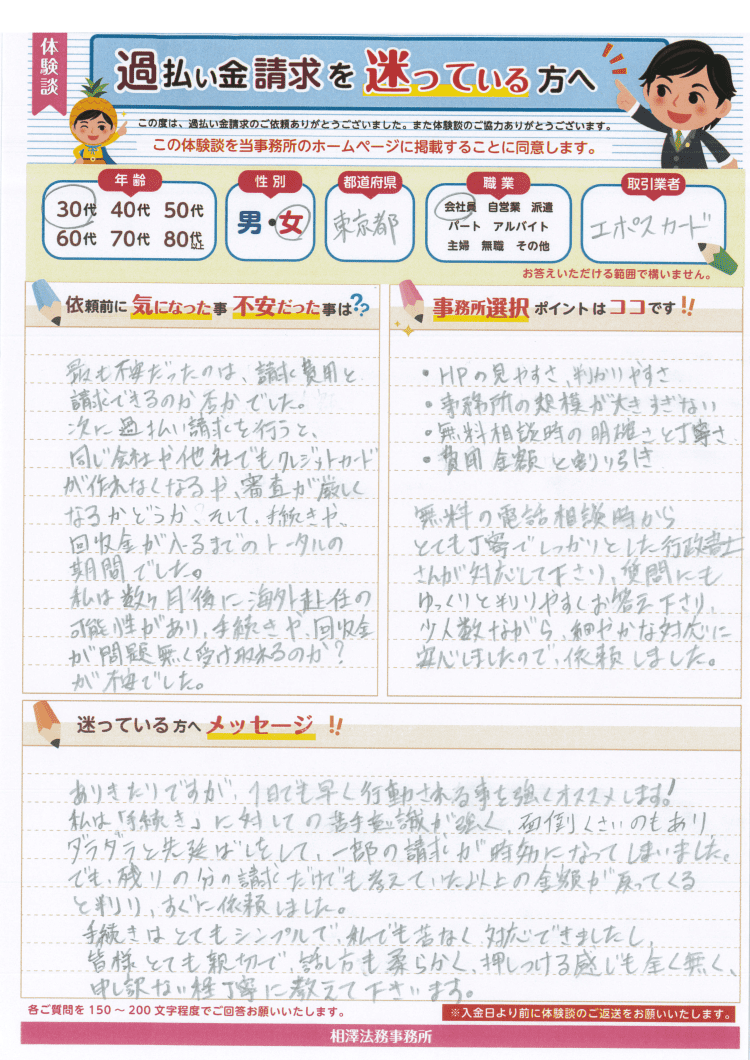 体験談
過払い金請求を迷っている方へ
この度は、過払い金請求のご依頼ありがとうございました。また体験談のご協力ありがとうございます。
この体験談を当事務所のホームページに掲載することに同意します。
年齢
30代 40代 50代
60代 70代 80代以上
性別
男・女
都道府県
東京都
職業
会社員 自営業 派遣
パート アルバイト
主婦 無職 その他
取引業者
エポスカード
お答えいただける範囲で構いません。
依頼前に気になった事 不安だった事は??
最も不安だったのは、請求費用と
請求できるのか否かでした。
次に過払い請求を行うと、
同じ会社や他社でもクレジットカード
が作れなくなるや、審査が厳しく
なるかどうか、そして、手続きや、
回収金が入るまでのトータルの
期間でした。
私は数ヶ月後に海外赴任の
可能性があり、手続きや、回収金
が問題無く受け取れるのか?
が不安でした。
事務所選択ポイントはココです!!
・HPの見やすさ、判かりやすさ
・事務所の規模が大きすぎない
・無料相談時の明確さと丁寧さ
・費用金額と割り引き
無料の電話相談時から
とても丁寧でしっかりとした行政書士
さんが対応して下さり、質問にも
ゆっくりと判りやすくお答え下さり、
少人数ながら、細やかな対応に
安心しましたので、依頼しました。
迷っている方へメッセージ!!
ありきたりですが、1日でも早く行動される事を強くオススメします!
私は「手続き」に対しての苦手意識が強く、面倒くさいのもあり、
ダラダラと先延ばしをして、一部の請求が時効になってしまいました。
でも、残りの分の請求だけでも考えていた以上の金額が戻ってくる
と判り、すぐに依頼しました。
手続きはとてもシンプルで、私でも苦なく対応できましたし、
皆様とても親切で、話し方も柔らかく、押しつける感じも全く無く、
申し訳ない程丁寧に教えて下さいます。
各ご質問を150~200文字程度でご回答お願いいたします。
※入金日より前に体験談のご返送をお願いいたします。
相澤法務事務所